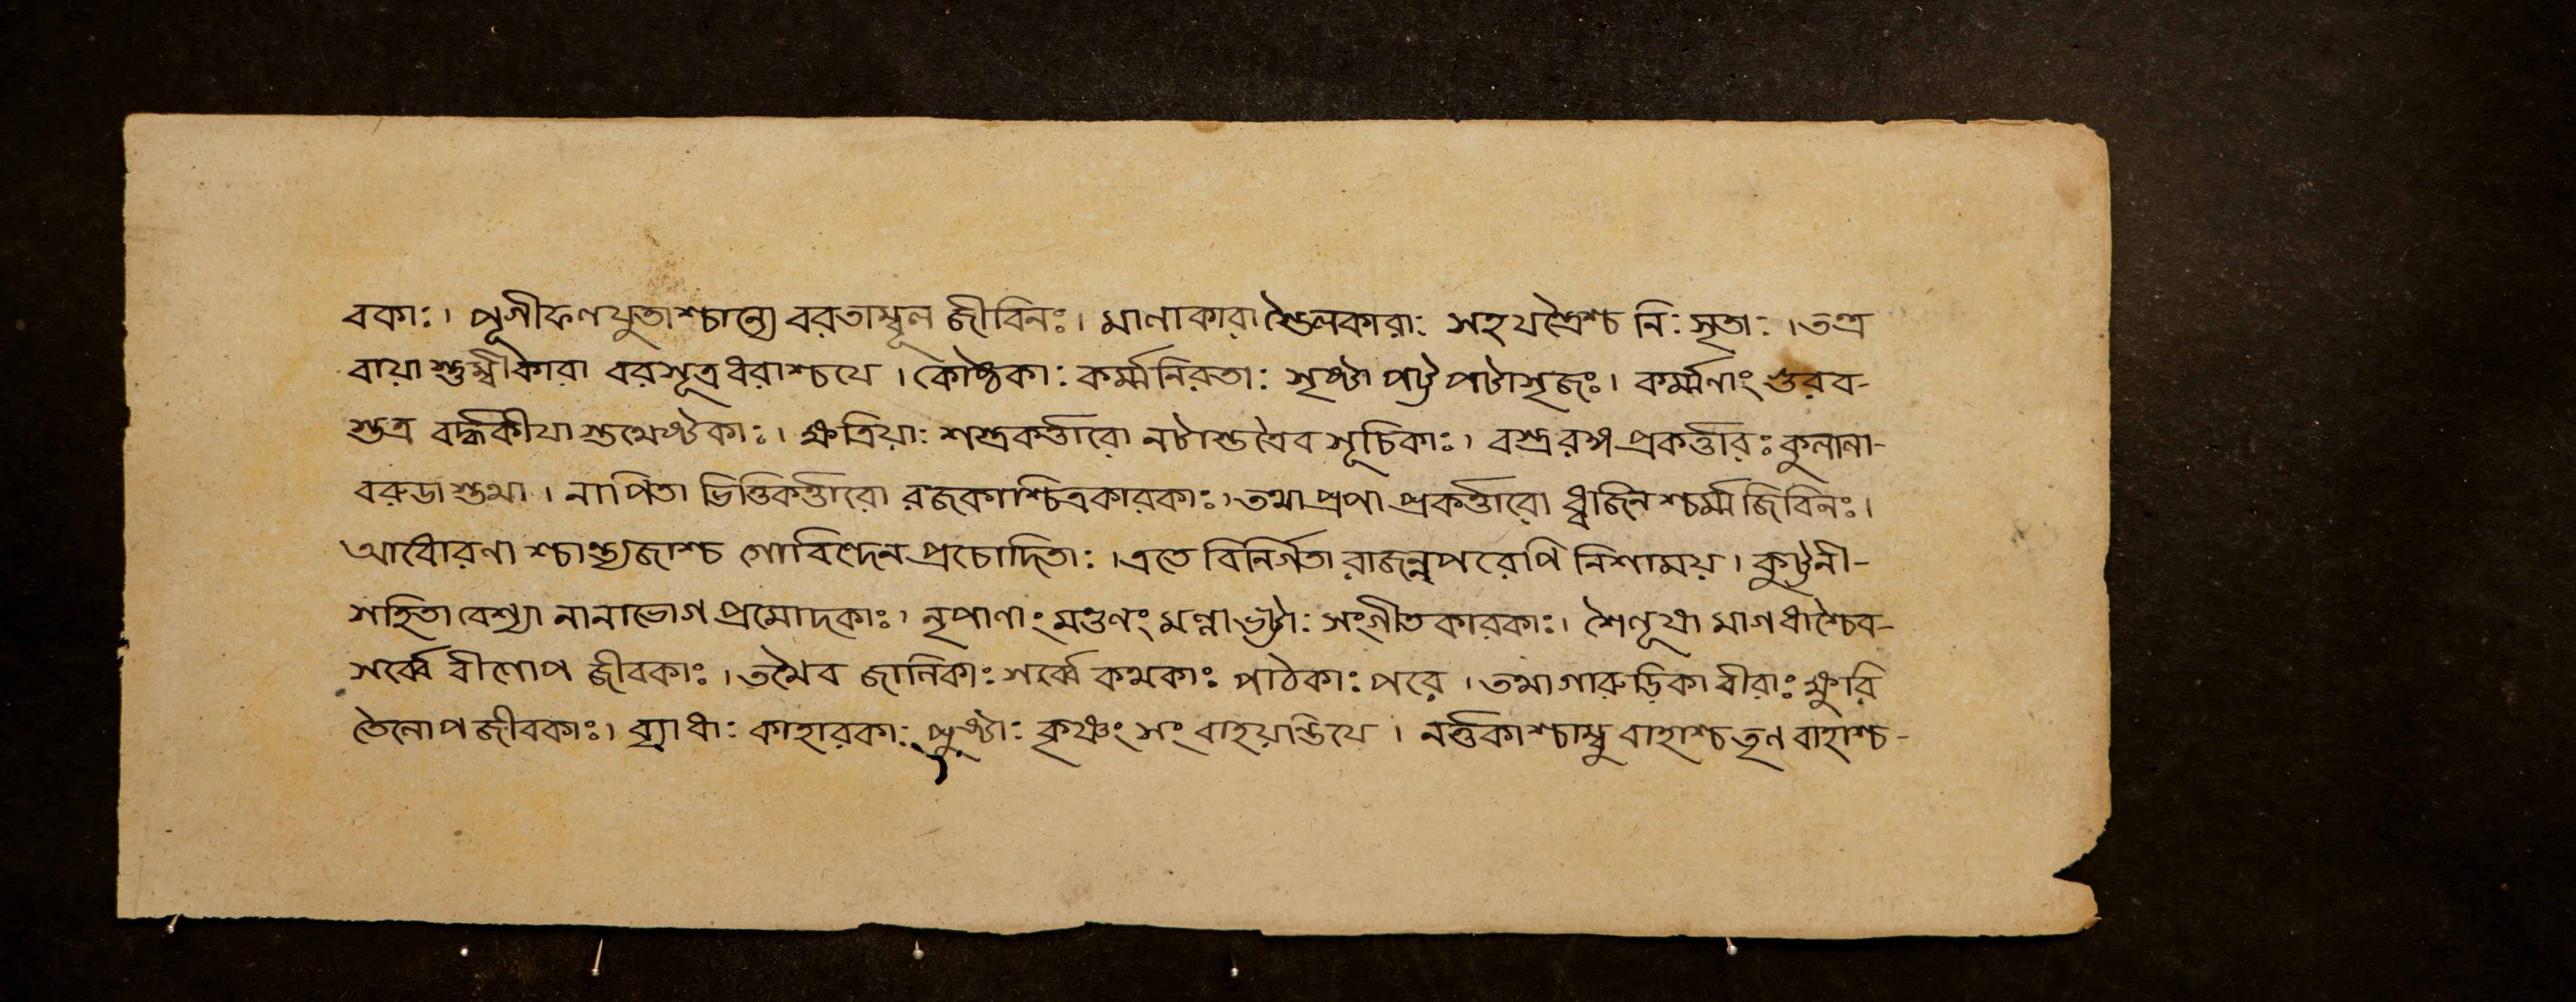 বকাঃ। পূগীফলযুতাশ্চান্যে বরতাম্বূল জীবিনঃ। মালাকারা শ্তৈলকারাঃ সহযত্রৈশ্চ নিঃসৃতাঃ। তত্র
বায়া শুম্বীকারা বরসূত্রধরাশ্চযে। কোষ্ঠকাঃ কর্ম্মনিরতাঃ সৃষ্টা পট্ট পটাসৃজঃ। কর্ম্মণাং গুরব-
স্তত্র বর্দ্ধকীযা স্তথেষ্টকাঃ। ক্ষত্রিয়াঃ শস্ত্রকর্ত্তারো নটাস্তত্রৈব সূচিকাঃ। বস্ত্ররঙ্গ প্রকর্ত্তারঃ কুলালা-
বরুডাস্তথা। নাপিতা ভিত্তিকর্ত্তারো রজকাশ্চিত্রকারকাঃ। তথা প্রপা প্রকর্ত্তারো ধ্বজিন শ্চর্ম্ম জিবিনঃ।
আধোরণা শ্চান্ত্যজাশ্চ গোবিন্দেন প্রচোদিতাঃ। এতে বিনির্গতা রাজন্নপরেপি নিশাময়। কুট্টনী-
সহিতা বেশ্যা নানাভোগ প্রমোদকাঃ। নৃপাণাং মণ্ডণং মল্লা ভট্টাঃ সংগীত কারকাঃ। শৈলূষা মাগধাশ্চৈব-
সর্ব্বে বীণোপ জীবকাঃ। তথৈব জালিকাঃ সর্ব্বে কথকাঃ পাঠকাঃ পরে। তথা গারুড়িকা বীরাঃ ক্ষুরি
তৈলোপ জীবকাঃ। ব্যাধাঃ কাহারকাঃ কৃষ্ণং সং বাহয়ান্তিযে। নর্ত্তকাশ্চাম্বু বাহাশ্চ তৃণ বাহাশ্চ-